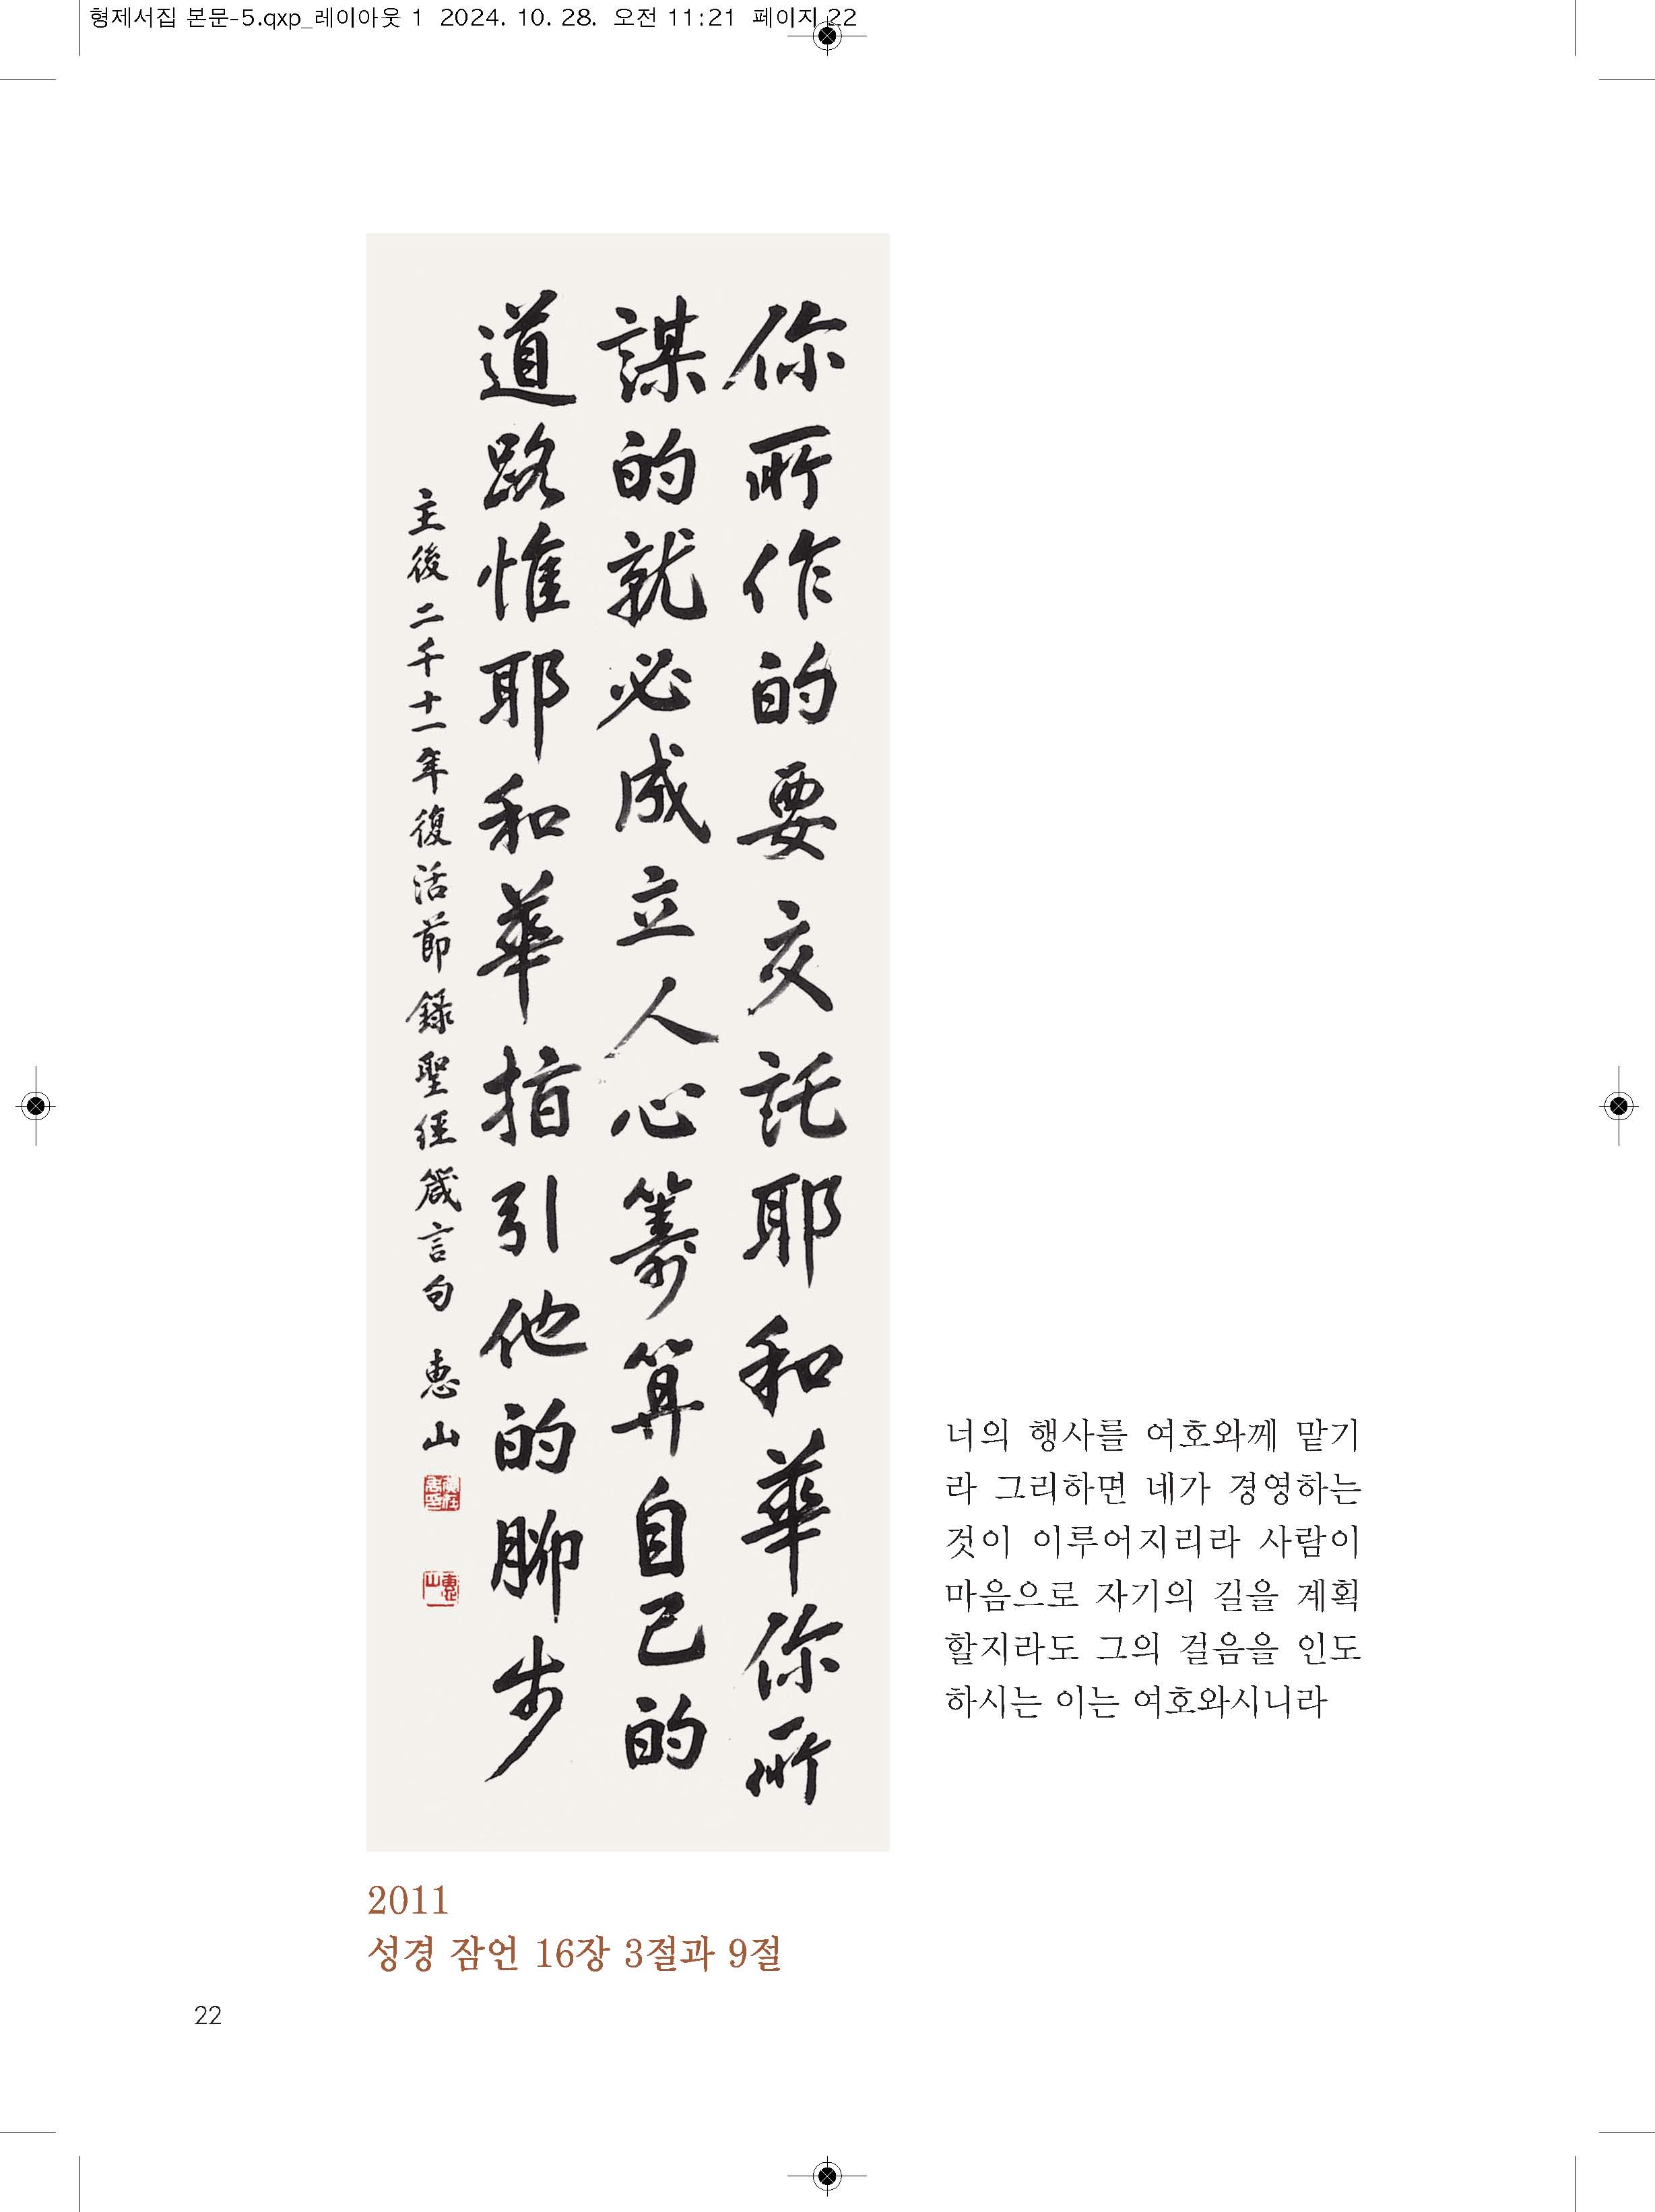 형제서집 본문-5.qxp_레이아웃 1 2024. 10. 28. 오전 11:21 페이지 22
你所作的要交託耶和華你所
謀的就必成立人心籌算自己的
道路惟耶和華指引他的腳步
主後二千十一年復活節錄聖經箴言句 惠山
너의 행사를 여호와께 맡기
라 그리하면 네가 경영하는
것이 이루어지리라 사람이
마음으로 자기의 길을 계획
할지라도 그의 걸음을 인도
하시는 이는 여호와시니라
2011
성경 잠언 16장 3절과 9절
22